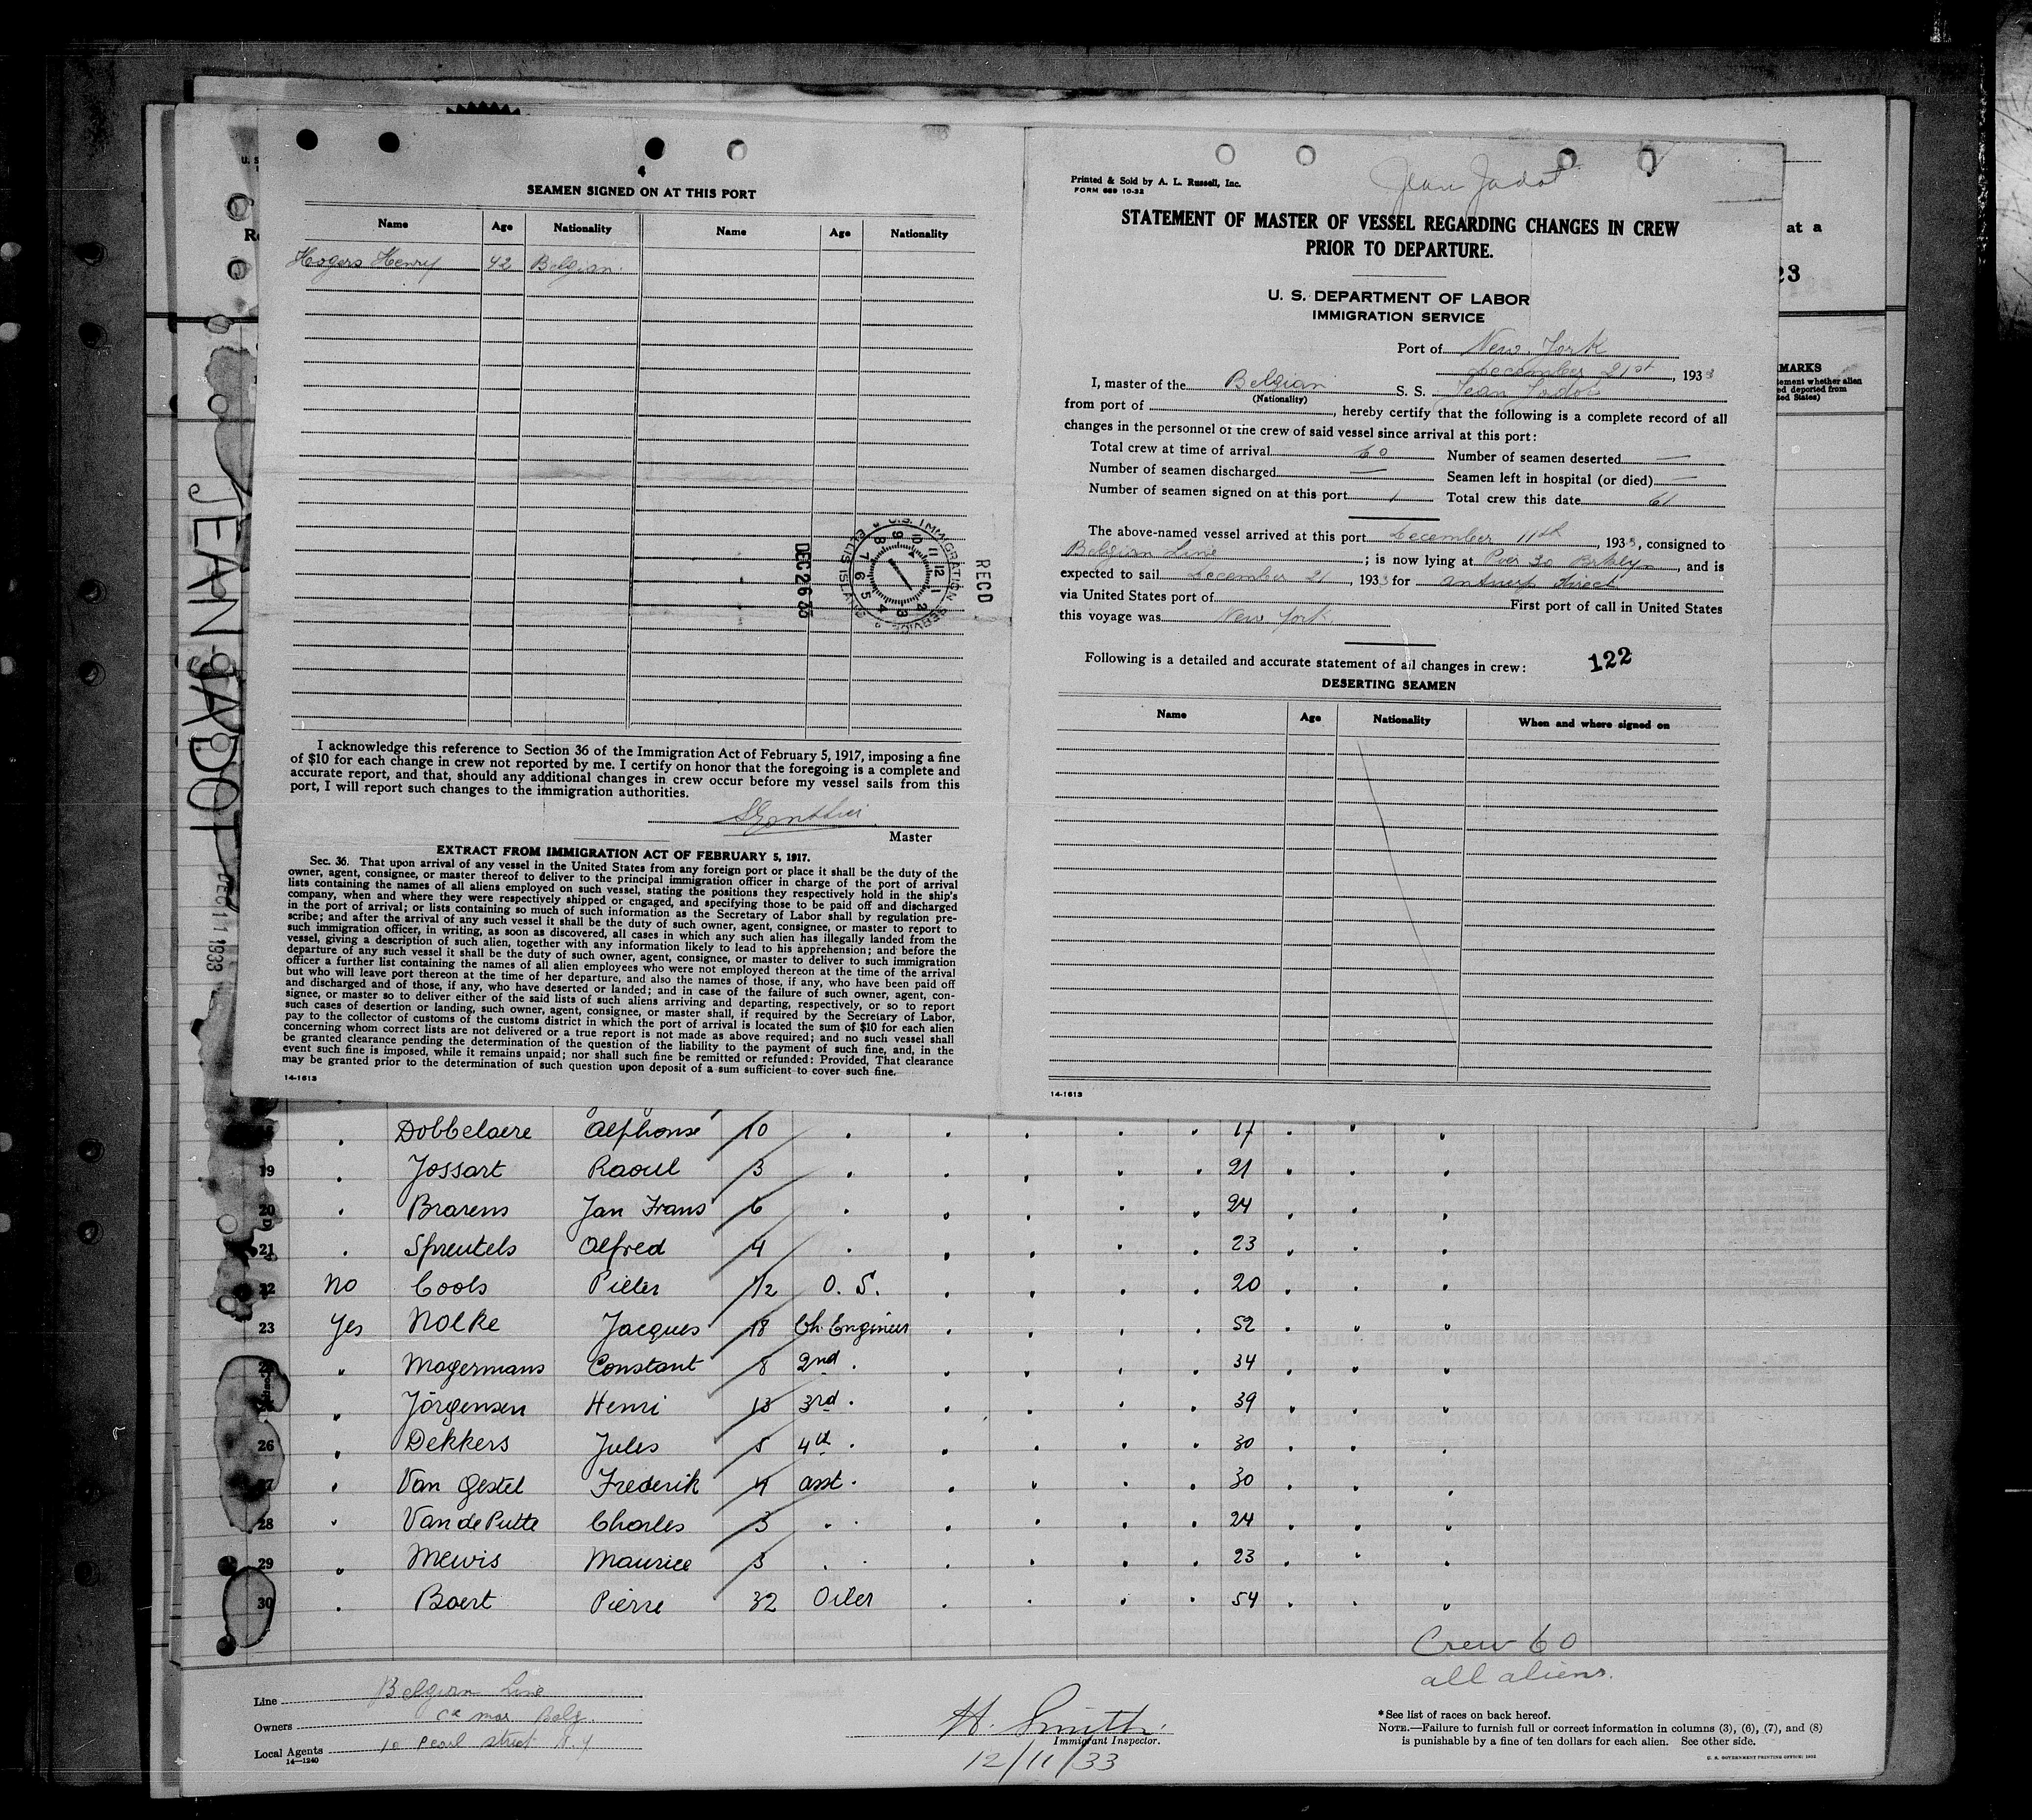 4
SEAMEN SIGNED ON AT THIS PORT
Name Age Nationality Name Age Nationality
Hogers Henry 42 Belgian
RECD
U.S. IMMIGRATION SERVICE ELLIS ISLAND
DEC 26 33
I acknowledge this reference to Section 36 of the Immigration Act of February 5, 1917, imposing a fine
of $10 for each change in crew not reported by me. I certify on honor that the foregoing is a complete and
accurate report, and that, should any additional changes in crew occur before my vessel sails from this
port, I will report such changes to the immigration authorities.
Master
EXTRACT FROM IMMIGRATION ACT OF FEBRUARY 5, 1917.
Sec. 36. That upon arrival of any vessel in the United States from any foreign port or place it shall be the duty of the
owner, agent, consignee, or master thereof to deliver to the principal immigration officer in charge of the port of arrival
lists containing the names of all aliens employed on such vessel, stating the positions they respectively hold in the ship's
company, when and where they were respectively shipped or engaged, and specifying those to be paid off and discharged
in the port of arrival; or lists containing so much of such information as the Secretary of Labor shall by regulation pre-
scribe; and after the arrival of any such vessel it shall be the duty of such owner, agent, consignee, or master to report to
such immigration officer, in writing, as soon as discovered, all cases in which any such alien has illegally landed from the
vessel, giving a description of such alien, together with any information likely to lead to his apprehension; and before the
departure of any such vessel it shall be the duty of such owner, agent, consignee, or master to deliver to such immigration
officer a further list containing the names of all alien employees who were not employed thereon at the time of the arrival
but who will leave port thereon at the time of her departure, and also the names of those, if any, who have been paid off
and discharged and of those, if any, who have deserted or landed; and in case of the failure of such owner, agent, con-
signee, or master so to deliver either of the said lists of such aliens arriving and departing, respectively, or so to report
such cases of desertion or landing, such owner, agent, consignee, or master shall, if required by the Secretary of Labor,
pay to the collector of customs of the customs district in which the port of arrival is located the sum of $10 for each alien
concerning whom correct lists are not delivered or a true report is not made as above required; and no such vessel shall
be granted clearance pending the determination of the question of the liability to the payment of such fine, and, in the
event such fine is imposed, while it remains unpaid; nor shall such fine be remitted or refunded: Provided, That clearance
may be granted prior to the determination of such question upon deposit of a sum sufficient to cover such fine.
14-1613
Jean Jadot
Printed & Sold by A. L. Russell, Inc.
FORM 689 10-32
STATEMENT OF MASTER OF VESSEL REGARDING CHANGES IN CREW
PRIOR TO DEPARTURE.
U. S. DEPARTMENT OF LABOR
IMMIGRATION SERVICE
Port of New York
December 21st, 1933
I, master of the Belgian S. S. Jean Jadot
(Nationality)
from port of , hereby certify that the following is a complete record of all
changes in the personnel of the crew of said vessel since arrival at this port:
Total crew at time of arrival 60 Number of seamen deserted —
Number of seamen discharged — Seamen left in hospital (or died) —
Number of seamen signed on at this port 1 Total crew this date 61
The above-named vessel arrived at this port December 11th, 1933, consigned to
Belgian Line ; is now lying at Pier 30 Brklyn, and is
expected to sail December 21, 1933 for Antwerp direct
via United States port of First port of call in United States
this voyage was New York
Following is a detailed and accurate statement of all changes in crew: 122
DESERTING SEAMEN
Name Age Nationality When and where signed on
14-1613
at a
23
MARKS
JEAN JADOT
DEC 11 1933
Dobbelaere Alphonse 10 17
19 Jossart Raoul 3 21
20 Brarens Jan Frans 6 24
21 Spreutels Alfred 4 23
22 No Cools Pieter 1/2 O. S. 20
23 Yes Nolke Jacques 18 Ch. Engineer 52
" Magermans Constant 8 2nd 34
" Jörgensen Henri 13 3rd 39
26 " Dekkers Jules 5 4th 30
27 " Van Gestel Frederik 4 asst. 30
28 " Van de Putte Charles 3 24
29 " Mewis Maurice 3 23
30 Baert Pierre 32 Oiler 54
Crew 60
all aliens.
Line Belgian Line
Owners Ce mar Belg.
Local Agents 10 Pearl street N.Y
14—1240
H. Smith
Immigrant Inspector.
12/11/33
*See list of races on back hereof.
NOTE.—Failure to furnish full or correct information in columns (3), (6), (7), and (8)
is punishable by a fine of ten dollars for each alien. See other side.
U. S. GOVERNMENT PRINTING OFFICE: 1932